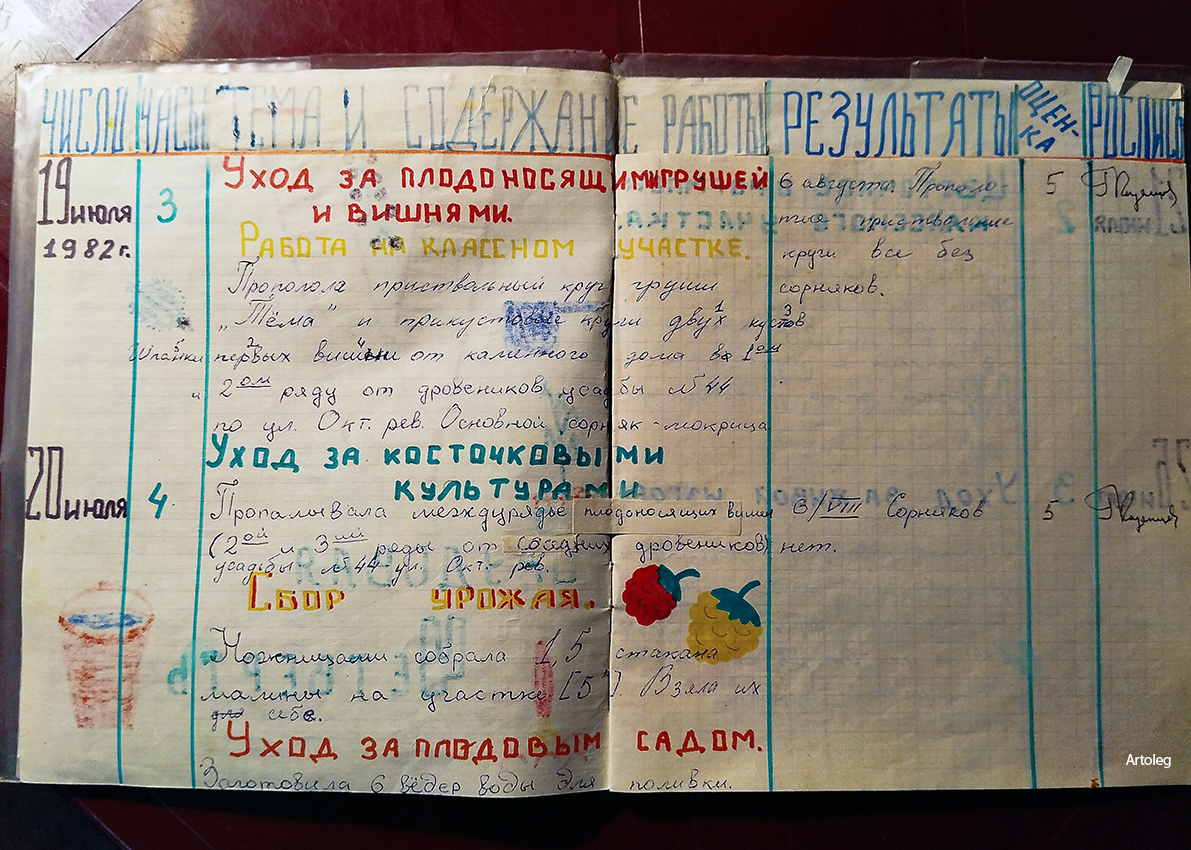 ЧИСЛО ЧАСЫ ТЕМА И СОДЕРЖАНИЕ РАБОТЫ РЕЗУЛЬТАТЫ ОЦЕН-КА РОСПИСЬ
19 июля 1982 г.
3
Уход за плодоносящими грушей
и вишнями.
Работа на классном участке.
Прополола приствольный круг груши
„Тёма" и прикустовые круги двух кустов
Шпанки первых вишни от каменного дома в 1ом
и 2ом ряду от дровеников усадьбы № 44
по ул. Окт. рев. Основной сорняк - мокрица
6 августа. Прополо
тые приствольные
круги все без
сорняков.
5
20 июля
4
Уход за косточковыми
культурами
Пропалывала междурядье плодоносящих вишен
(2ой и 3ий ряды от соседних дровеников)
усадьбы № 44 ул. Окт. рев.
3/VIII Сорняков
нет.
5
Сбор урожая.
Ножницами собрала 1,5 стакана
малины на участке [5"]. Взяла их
для себе.
Уход за плодовым садом.
Заготовила 6 вёдер воды для поливки.
Artoleg